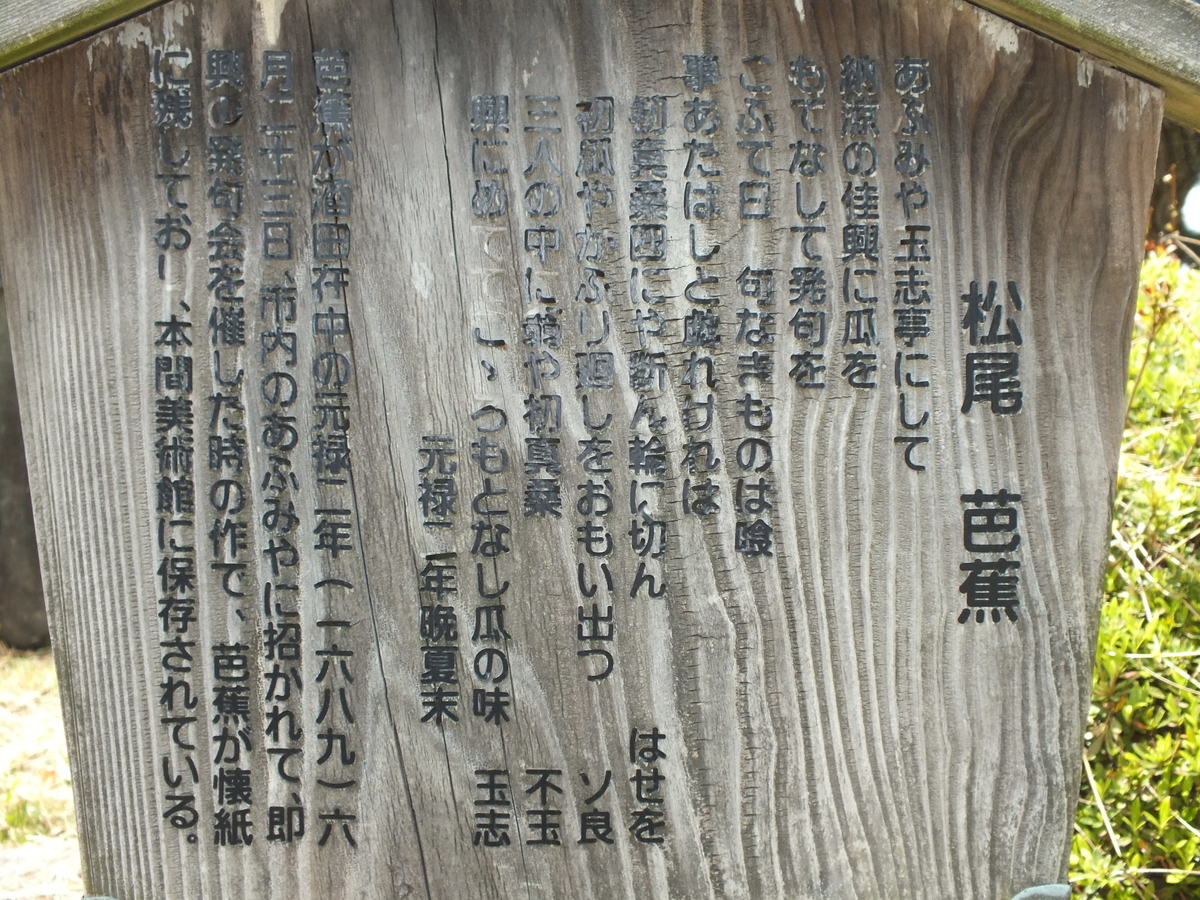 松尾 芭蕉
あふみや玉志亭にして
納涼の佳興に瓜を
もてなして発句を
こふて曰 句なきものは喰
事あたはしと戯れけれは
初真桑四にや断ん輪に切ん はせを
初瓜やかふり廻しをおもい出つ ソ良
三人の中に翁や初真桑 不玉
興にめてて こゝろもとなし瓜の味 玉志
元禄二年晩夏末
芭蕉が酒田在中の元禄二年(一六八九)六
月二十三日、市内のあふみやに招かれて、即
興の発句会を催した時の作で、芭蕉が懐紙
に残しており、本間美術館に保存されている。